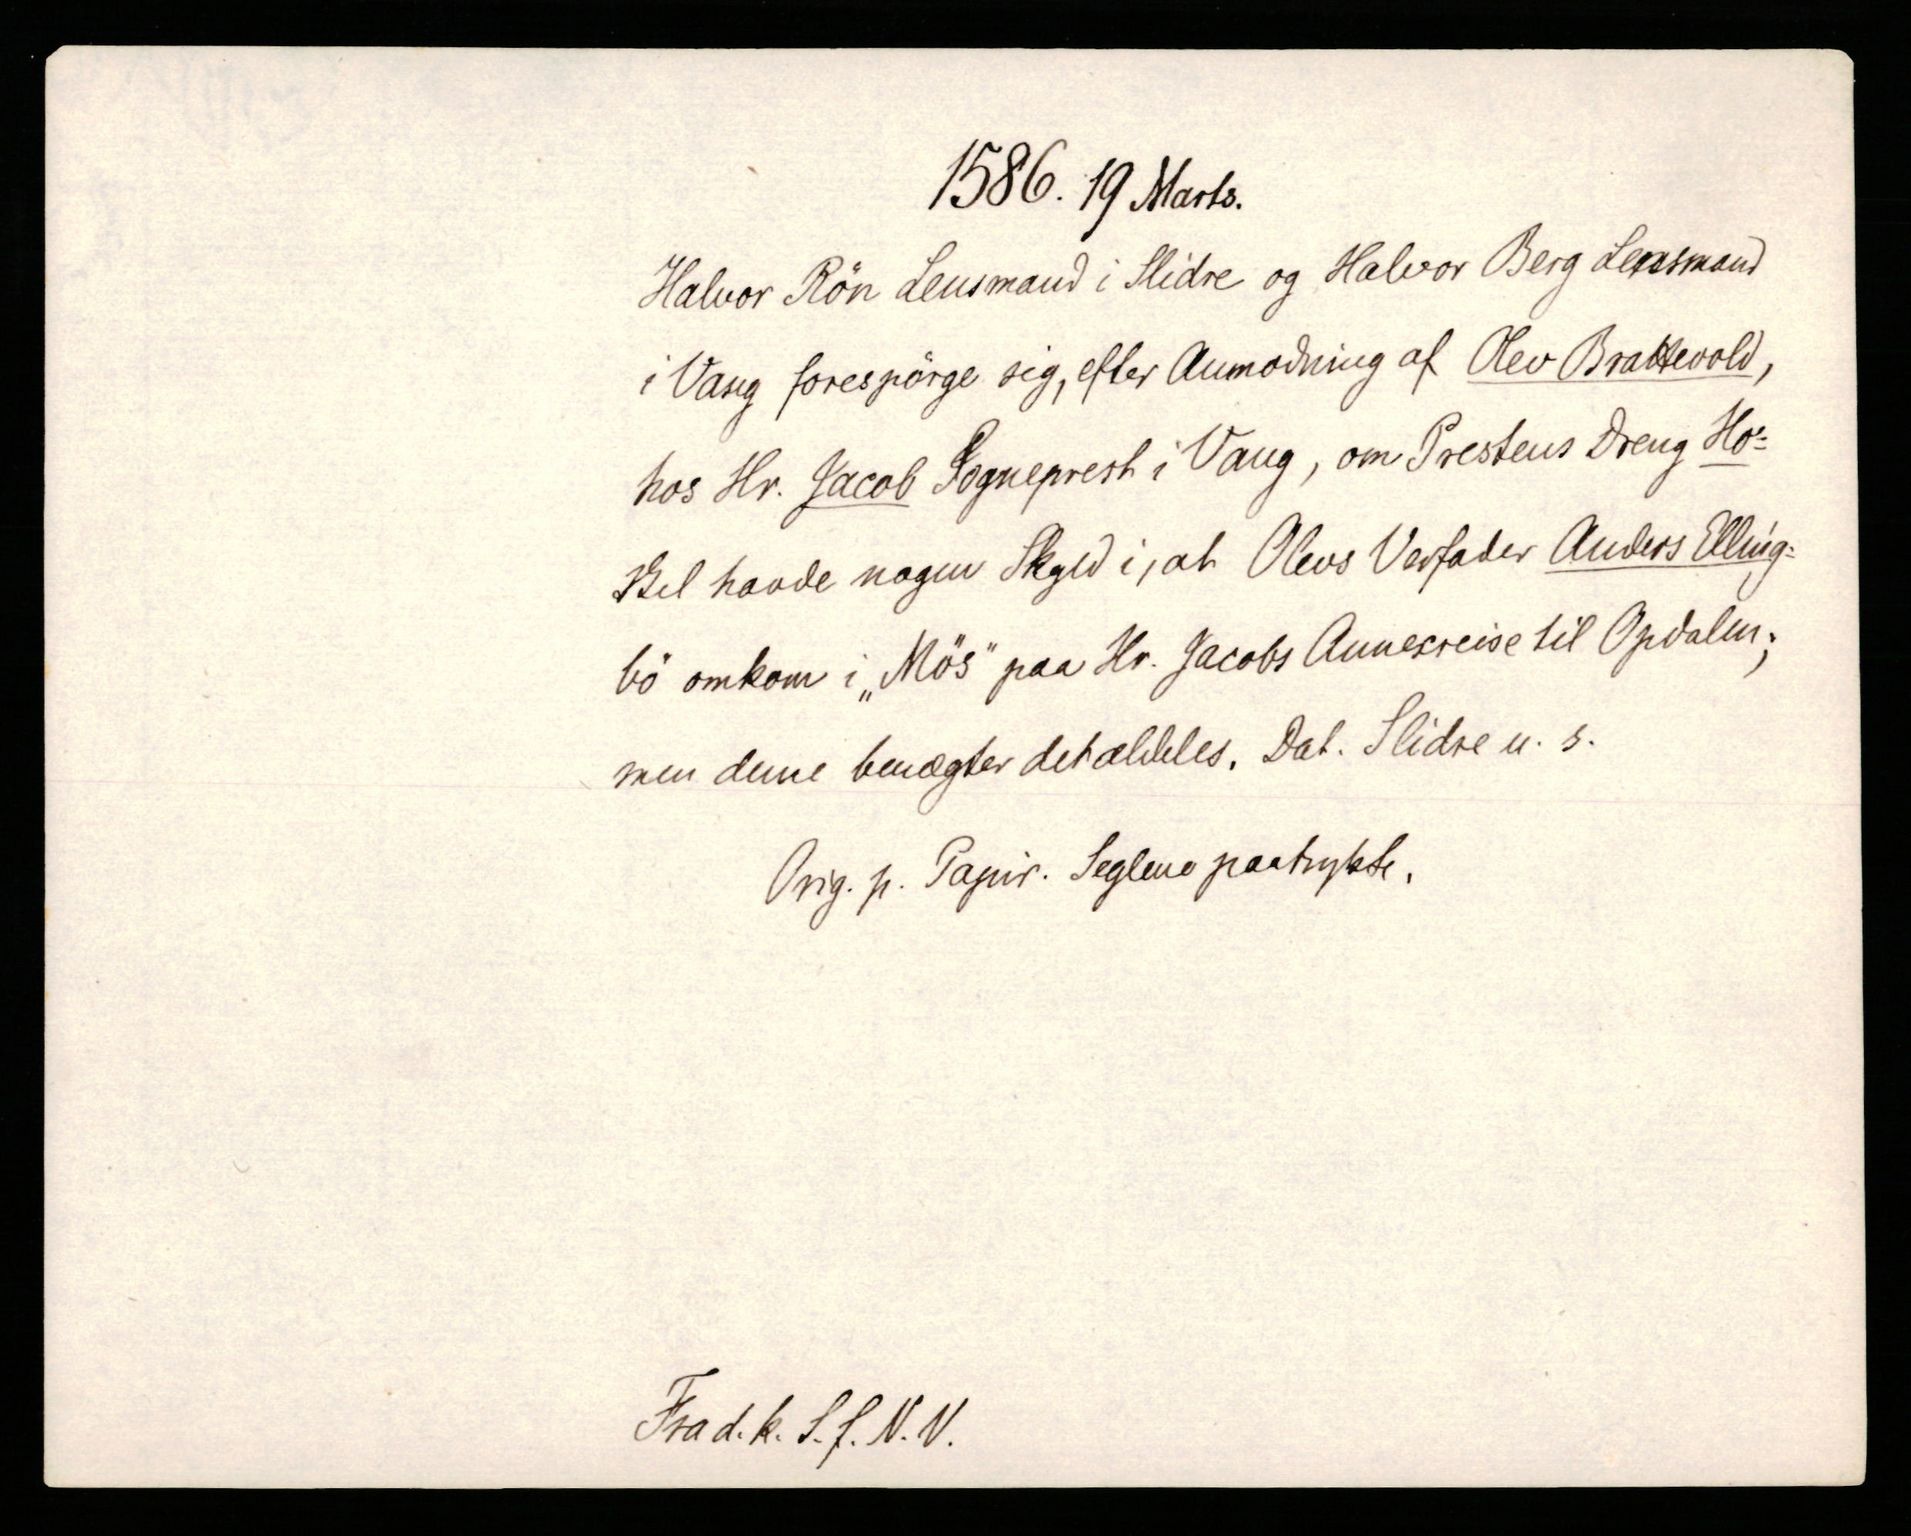 1586. 19 Marts.
Halvor Rön Lensmand i Slidre og Halvor Berg Lensmand
i Vang forespörge sig, efter Anmodning af Olev Brattevold,
hos Hr. Jacob Sogneprest i Vang, om Prestens Dreng Ho=
skel havde nogen Skyld i, at Olevs Verfader Anders Elling=
bö omkom i „Mös" paa Hr. Jacobs Annexreise til Opdalen;
men denne benægter det aldeles. Dat. Slidre u. s.
Orig. p. Papir. Seglene paatrykte.
Fra d. k. S. f. N. V.